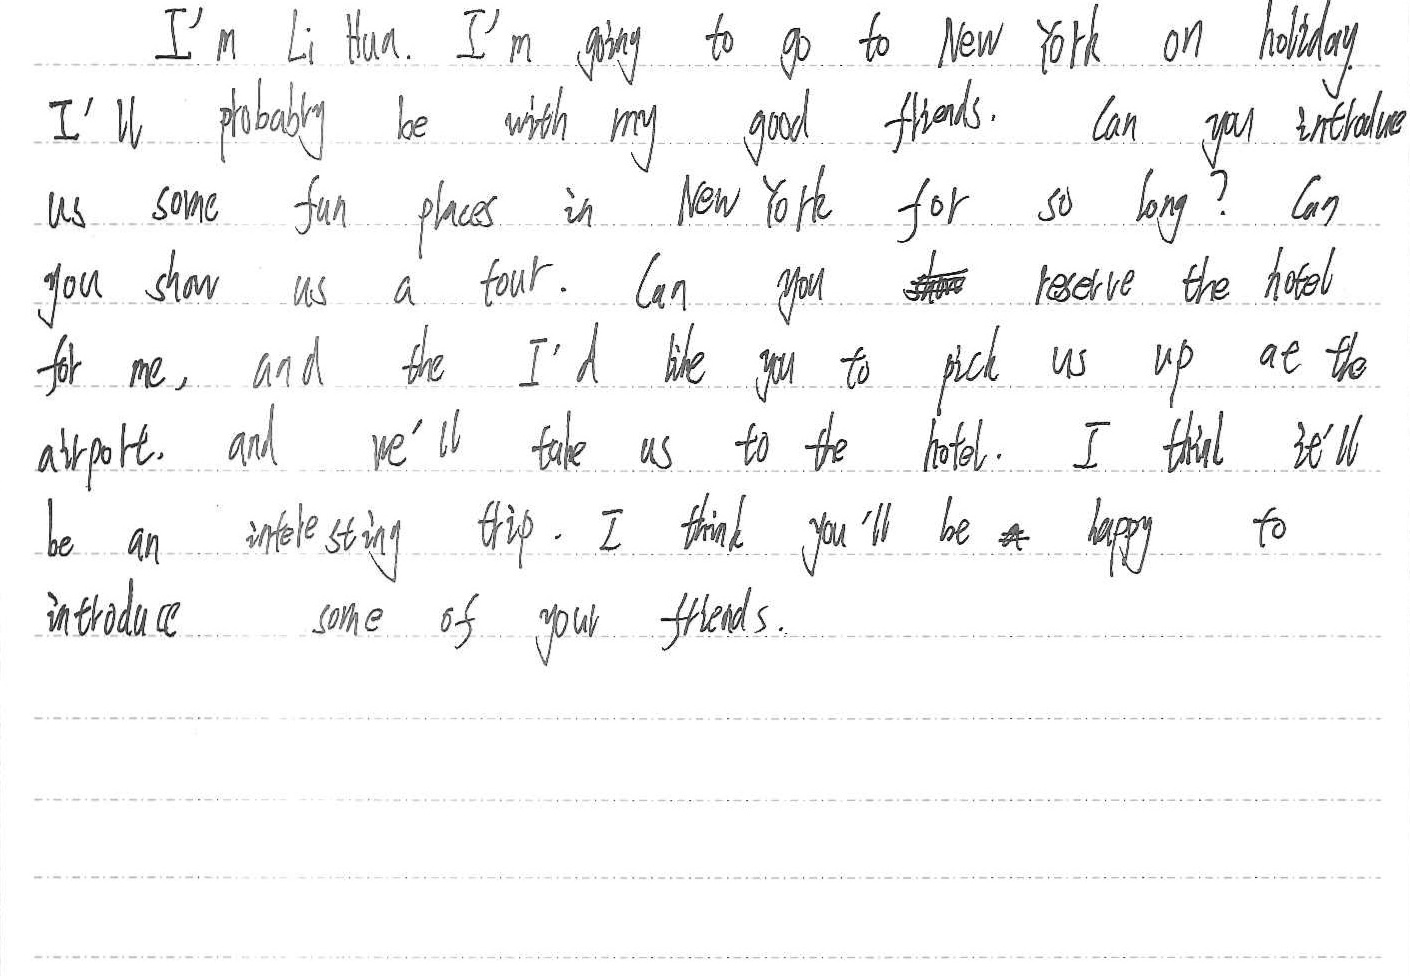 I'm Li Hua. I'm going to go to New York on holiday.
I'll probably be with my good friends. Can you introduce
us some fun places in New York for so long? Can
you show us a tour. Can you reserve the hotel
for me, and the I'd like you to pick us up at the
airport. and we'll take us to the hotel. I think it'll
be an interesting trip. I think you'll be happy to
introduce some of your friends.